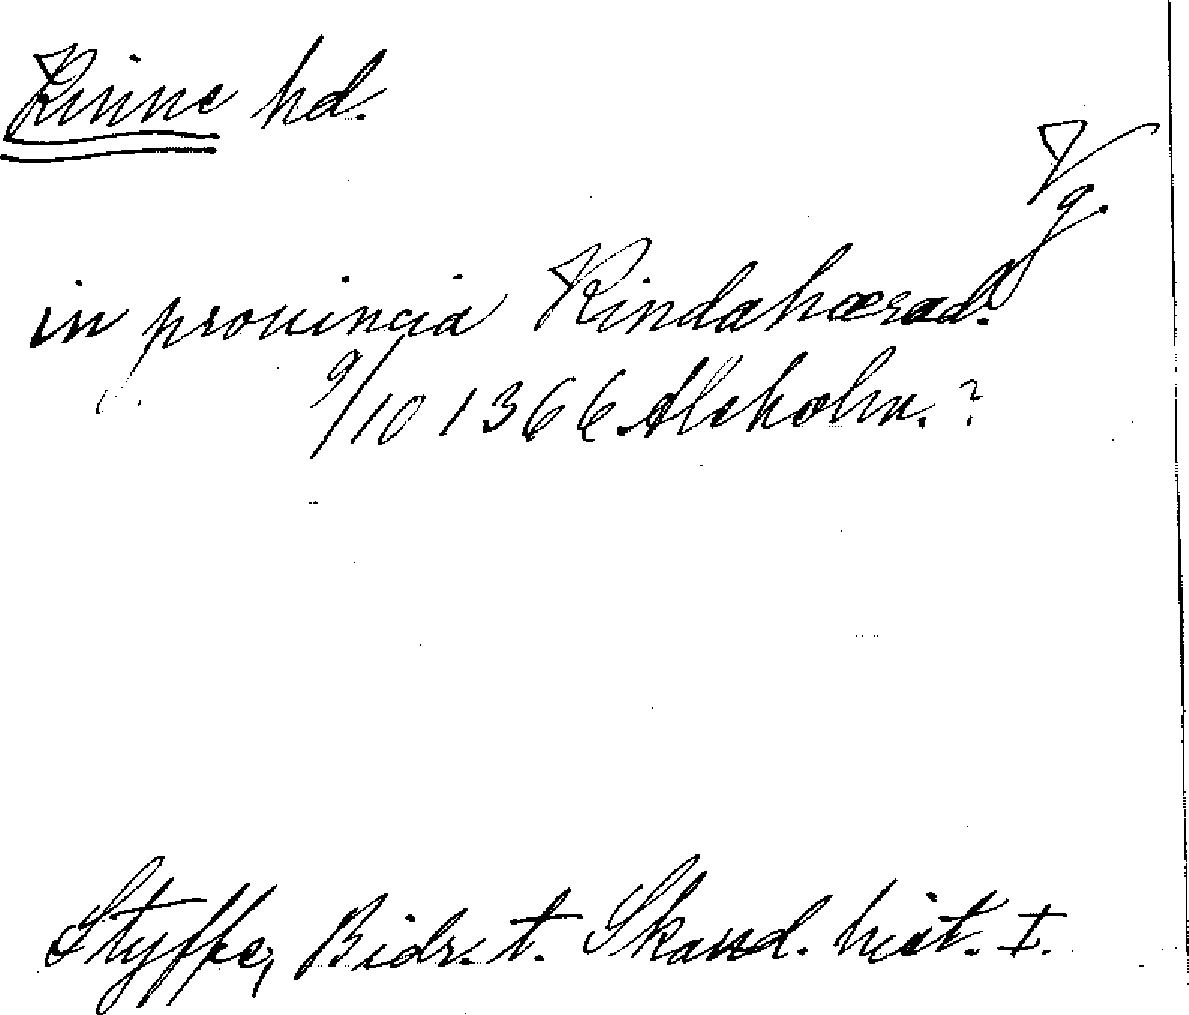 Kinne hd.
Vg.
in prouincia Kindahærad.
9/10 1366 Alcholm. ?
Styffe, Bidr. t. Skand. hist. I.